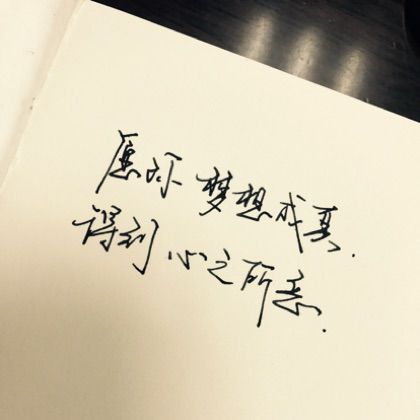 愿你 梦想成真.
得到 心之所念.